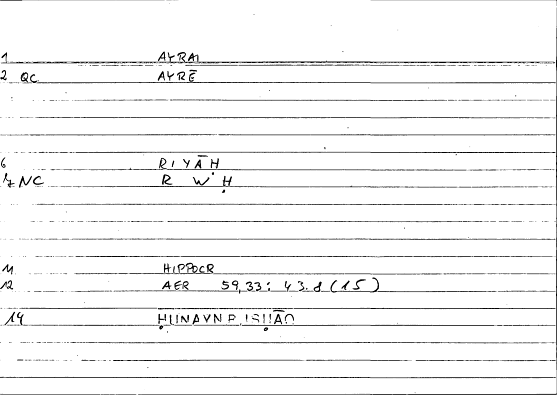 1 AYRAI
2 QC AYRĒ
6 RIYĀḤ
7 NC R W Ḥ
11 HIPPOCR
12 AER 59,33: 43.8 (15)
14 ḤUNAYN B. ISḤĀQ